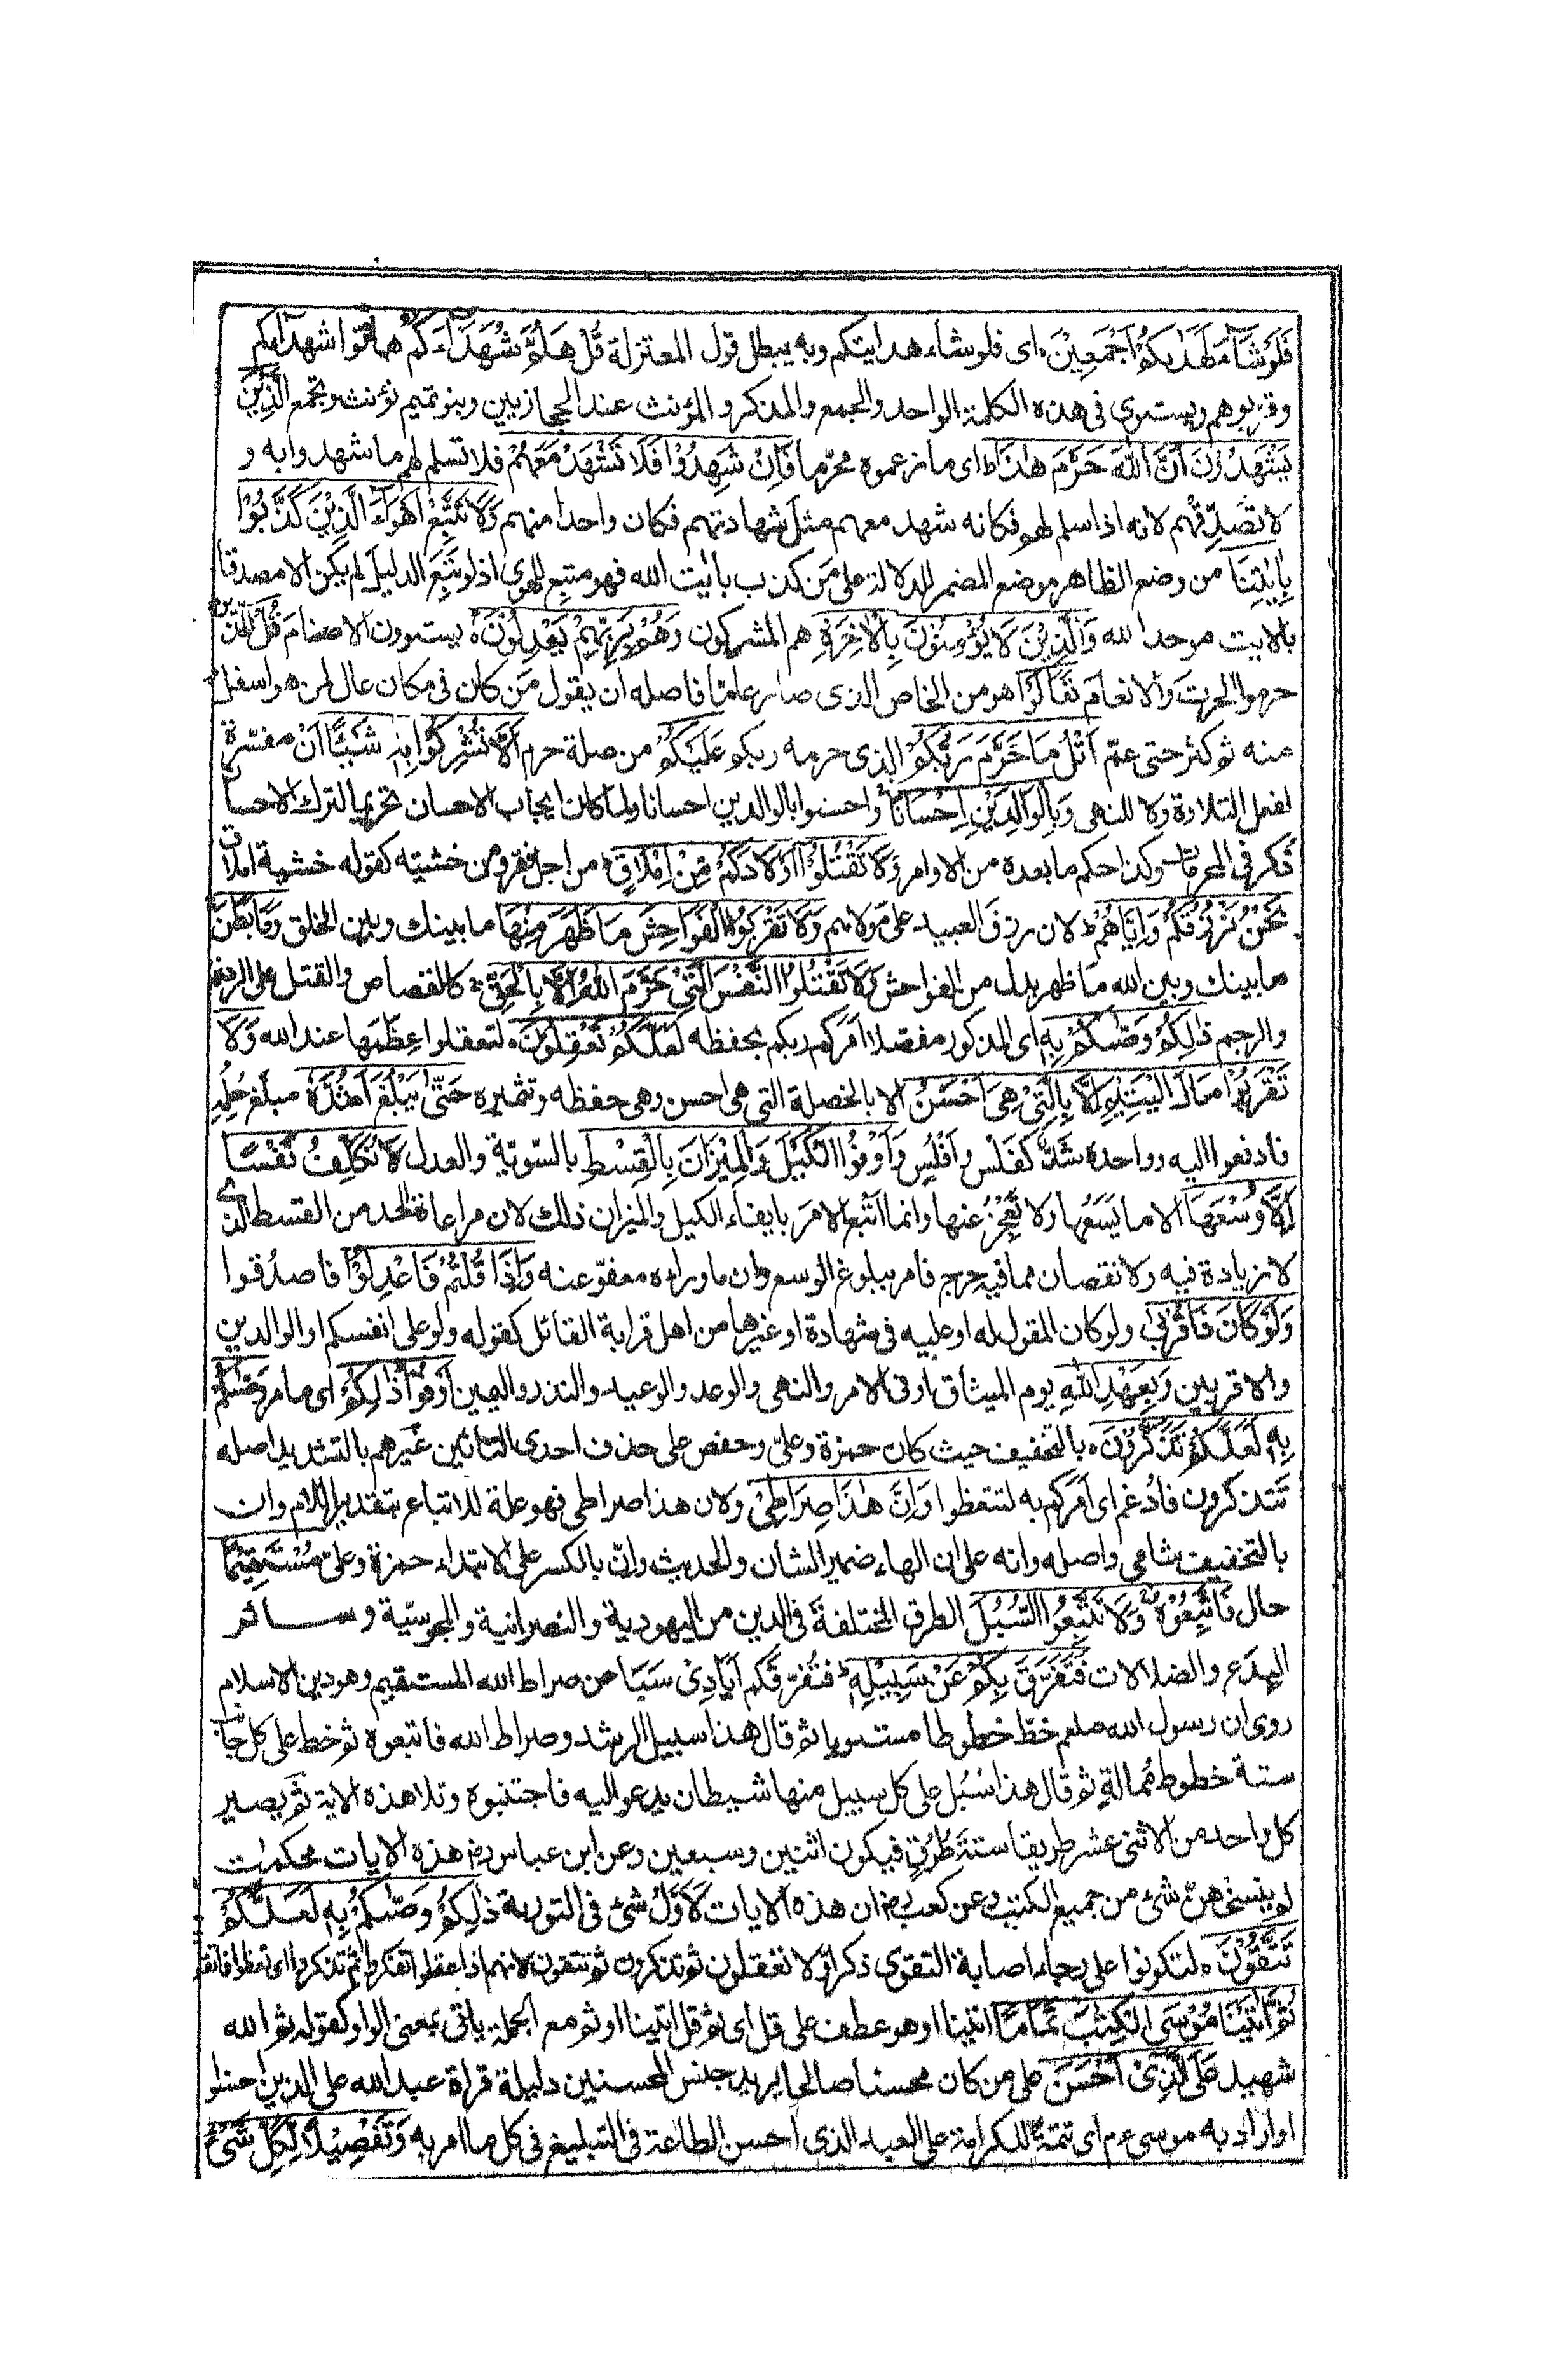 فَلَوْ شَآءَ لَهَدٰىكُمْ اَجْمَعِيْنَ ہ اى فلو شاء هدايتكم وبه يبطل قول المعتزلة قُلْ هَلُمَّ شُهَدَآءَكُمُ هاتوا شهداءكم
وقربوهم ويستوى فى هذه الكلمة الواحد والجمع والمذكر و المؤنث عند الحجازيين وبنو تميم تؤنث وتجمع الَّذِيْنَ
يَشْهَدُوْنَ اَنَّ اللّٰهَ حَرَّمَ هٰذَا ط اى ما زعموه محرّما فَاِنْ شَهِدُوْا فَلَا تَشْهَدْ مَعَهُمْ فلا تسلم لهم ما شهدوا به و
لا تصدّقهم لانه اذا سلم لهم فكانه شهد معهم مثل شهادتهم فكان واحدا منهم وَلَا تَتَّبِعْ اَهْوَآءَ الَّذِيْنَ كَذَّبُوْا
بِاٰيٰتِنَا من وضع الظاهر موضع المضمر للدلالة على من كذب بايٰت الله فهو متبع للهوى اذ لو تبع الدليل لم يكن الا مصدقا
بالايت موحدا لله وَالَّذِيْنَ لَا يُؤْمِنُوْنَ بِالْاٰخِرَةِ هم المشركون وَهُمْ بِرَبِّهِمْ يَعْدِلُوْنَ ہ يسوون الاصنام قُلْ للذين
حرموا الحرث والانعام تَعَالَوْا هو من الخاص الذى صار عامّا فاصله ان يقول من كان فى مكان عال لمن هو اسفل
منه ثم كثر حتى عمّ اَتْلُ مَا حَرَّمَ رَبُّكُمْ الذى حرمه ربكم عَلَيْكُمْ من صلة حرم اَلَّا تُشْرِكُوْا بِهٖ شَيْـًٔا اَنْ مفسّرة
لفعل التلاوة ولا للنهى وَبِالْوَالِدَيْنِ اِحْسَانًا واحسنوا بالوالدين احسانا ولما كان ايجاب الاحسان تحريما لترك الاحسان
ذكر فى المحرمات وكذا حكم ما بعده من الاوامر وَلَا تَقْتُلُوْٓا اَوْلَادَكُمْ مِّنْ اِمْلَاقٍ من اجل فقر ومن خشيته كقوله خشية املاق
نَحْنُ نَرْزُقُكُمْ وَاِيَّاهُمْ لان رزق العبيد على مولاهم وَلَا تَقْرَبُوا الْفَوَاحِشَ مَا ظَهَرَ مِنْهَا ما بينك وبين الخلق وَمَا بَطَنَ
ما بينك وبين الله ما ظهر بدل من الفواحش وَلَا تَقْتُلُوا النَّفْسَ الَّتِيْ حَرَّمَ اللّٰهُ اِلَّا بِالْحَقِّ كالقصاص والقتل على الردة
والرجم ذٰلِكُمْ وَصّٰىكُمْ بِهٖ اى المذكور مفصلا امركم ربكم بحفظه لَعَلَّكُمْ تَعْقِلُوْنَ ہ لتعقلوا عظمها عند الله وَلَا
تَقْرَبُوْا مَالَ الْيَتِيْمِ اِلَّا بِالَّتِيْ هِيَ اَحْسَنُ الا بالخصلة التى هى احسن وهى حفظه وتثميره حَتّٰى يَبْلُغَ اَشُدَّهٗ مبلغ حلمه
فادفعوا اليه وواحده شَدٌّ كفَلس وافلس وَاَوْفُوا الْكَيْلَ وَالْمِيْزَانَ بِالْقِسْطِ بالسّويّة والعدل لَا نُكَلِّفُ نَفْسًا
اِلَّا وُسْعَهَا الا ما يسعها ولا تعجز عنها وانما اتبع الامر بايفاء الكيل والميزان ذلك لان مراعاة الحد من القسط الذى
لا زيادة فيه ولا نقصان مما فيه حرج فامر ببلوغ الوسع وان ما وراءه معفوّ عنه وَاِذَا قُلْتُمْ فَاعْدِلُوْا فاصدُقوا
وَلَوْ كَانَ ذَا قُرْبٰى ولو كان المقول له او عليه فى شهادة او غيرها من اهل قرابة القائل كقوله ولو على انفسكم او الوالدين
والاقربين وَبِعَهْدِ اللّٰهِ يوم الميثاق او فى الامر والنهى والوعد والوعيد والنذر واليمين اَوْفُوْا ذٰلِكُمْ اى ما مر وَصّٰىكُمْ
بِهٖ لَعَلَّكُمْ تَذَكَّرُوْنَ ہ بالتخفيف حيث كان حمزة وعلىّ وحفص على حذف احدى التائين غيرهم بالتشديد اصله
تتذكرون فادغم اى امركم به لتتعظوا وَاَنَّ هٰذَا صِرَاطِيْ ولان هذا صراطى فهو علة للاتباع بتقدير اللام وان
بالتخفيف شامى واصله وانه على ان الهاء ضمير الشان والحديث وانّ بالكسر على الابتداء حمزة وعلىّ مُسْتَقِيْمًا
حال فَاتَّبِعُوْهُ وَلَا تَتَّبِعُوا السُّبُلَ الطرق المختلفة فى الدين من اليهودية والنصرانية والمجوسيّة وسائر
البدع والضلالات فَتَفَرَّقَ بِكُمْ عَنْ سَبِيْلِهٖ فتفرّقكم اَيادى سَبَا عن صراط الله المستقيم وهو دين الاسلام
روى ان رسول الله صلعم خطّ خطوطا مستويا ثم قال هذا سبيل الرشد وصراط الله فاتبعوه ثم خط على كل جانب
ستة خطوط ممالة ثم قال هذا سُبُل على كل سبيل منها شيطان يدعو اليه فاجتنبوه وتلا هذه الاية ثم يصير
كل واحد من الاثنى عشر طريقا ستة طُرُقٍ فيكون اثنين وسبعين وعن ابن عباس رض هذه الايات محكمٰت
لم ينسخهن شئ من جميع الكتب وعن كعب رض ان هذه الايات لَاَوّلُ شئ فى التورٰىة ذٰلِكُمْ وَصّٰىكُمْ بِهٖ لَعَلَّكُمْ
تَتَّقُوْنَ ہ لتكونوا على رجاء اصابة التقوى ذكر اوّلا تعقلون ثم تذكرون ثم تتقون لانهم اذا عقلوا تفكروا ثم تذكروا اى تعظوا فاتقوا
ثُمَّ اٰتَيْنَا مُوْسَى الْكِتٰبَ تَمَامًا اى ثم اخبركم انا اتينا او هو عطف على قل اى ثم قل اتينا او ثم مع الجملة ياتى بمعنى الواو كقوله ثم الله
شهيد عَلَى الَّذِيْٓ اَحْسَنَ على من كان محسنا صالحا يريد جنس المحسنين دليله قراءة عبد الله على الذين احسنوا
او اراد به موسى ءم اى تتمة للكرامة على العبد الذى احسن الطاعة فى التبليغ فى كل ما امر به وَتَفْصِيْلًا لِّكُلِّ شَيْءٍ